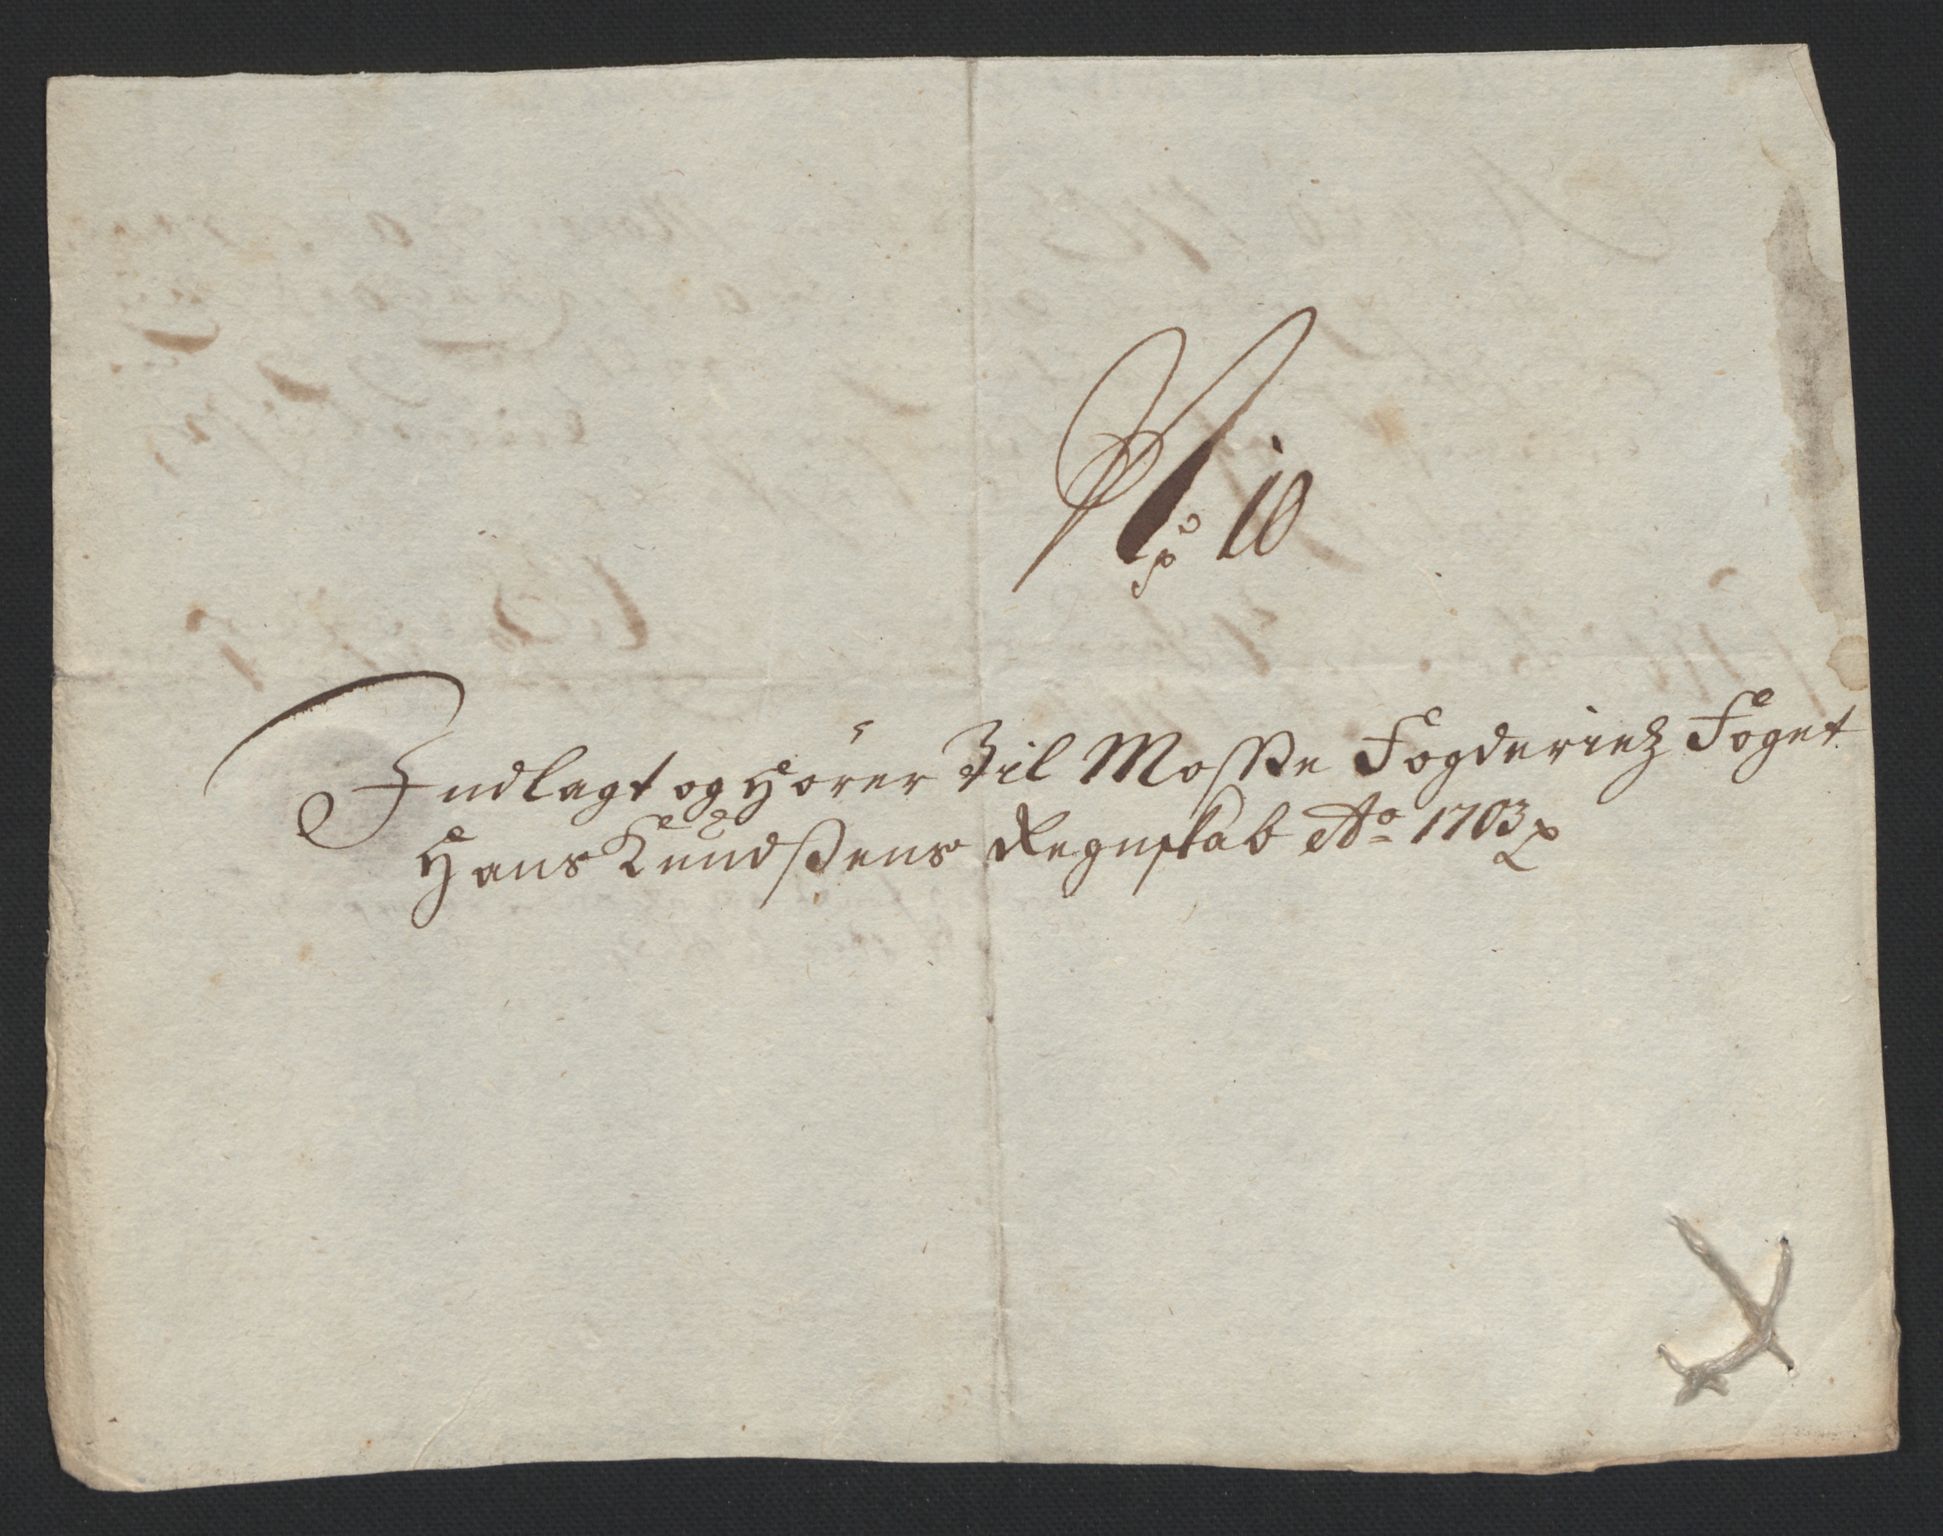 No 10
Indlagt og Hörer Til Mosse Fogderietz Foget
Hans Knudßens Regnskab Ao 1703